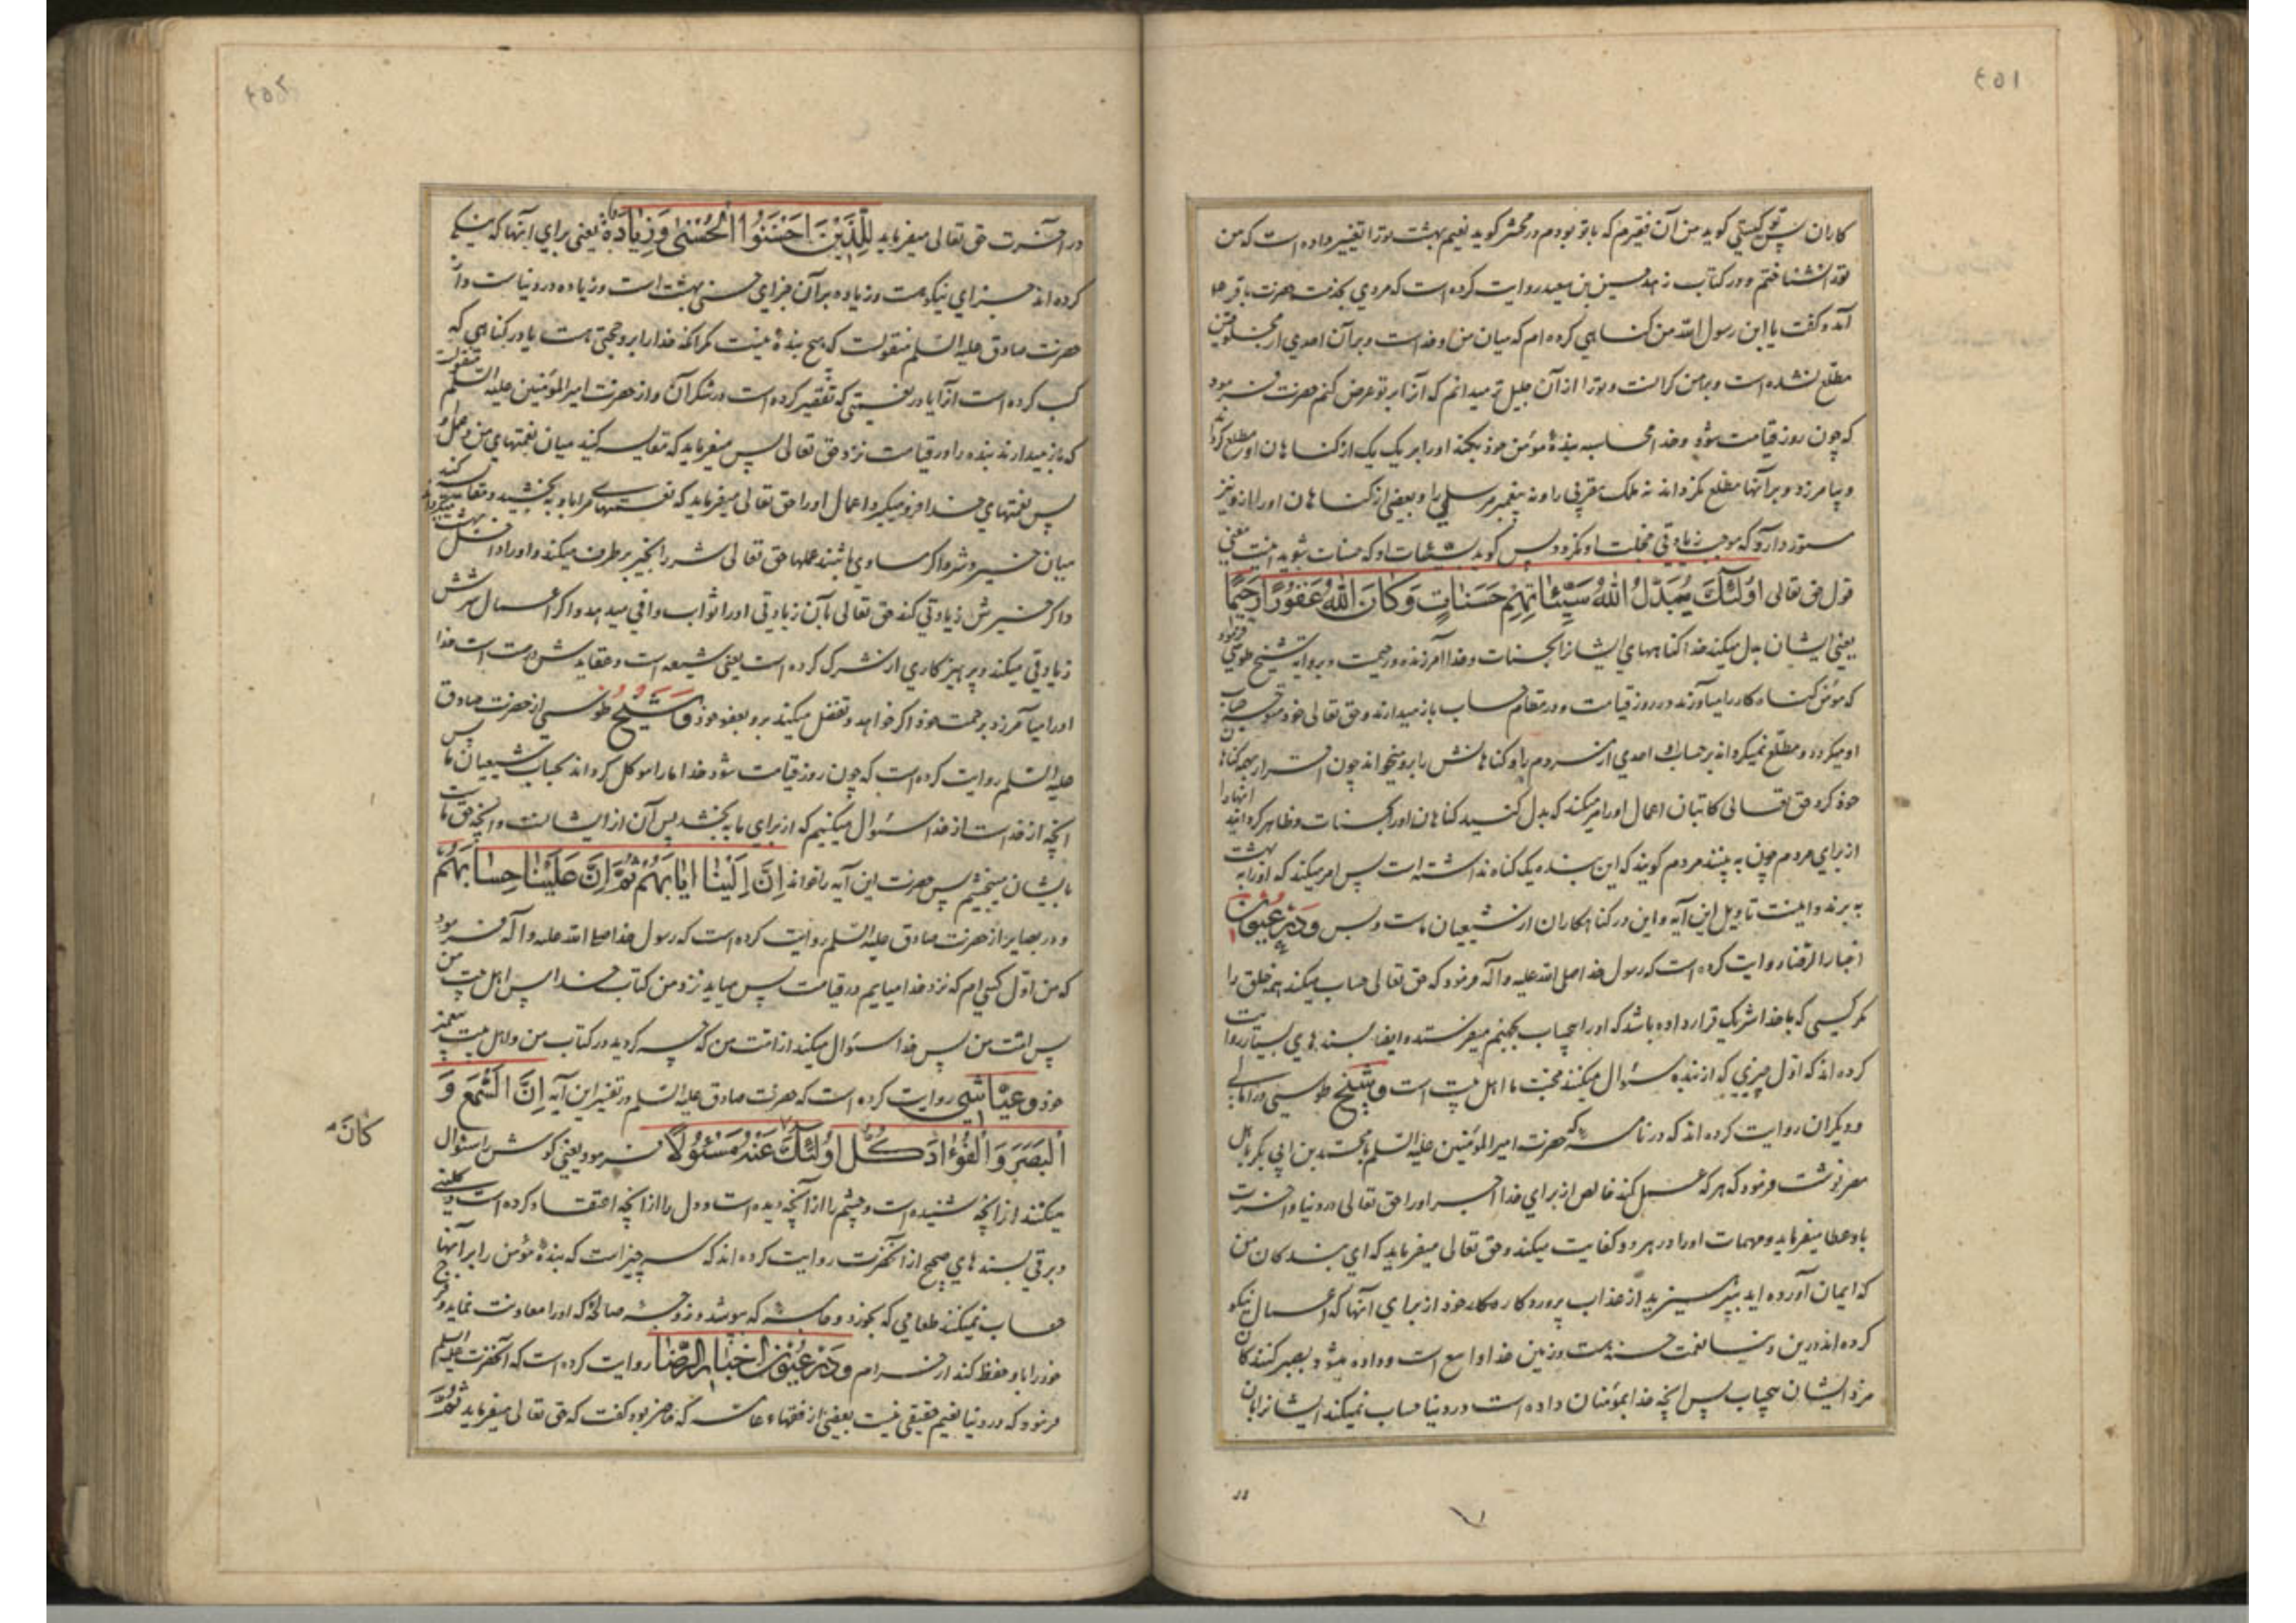 ٤٥١
کاران پس تو کیستی کوید من آن فقیرم که باتو بودم در محشر کوید نعیم بهشت تورا تغییر داده است که من
تورا نشناختم و در کتاب زهد حسین بن سعید روایت کرده است که مردی بخدمت حضرت باقر ع
آمد و کفت یا ابن رسول الله من کناهی کرده ام که میان من و خداست و بر آن احدی از مخلوقین
مطلع نشده است و بر من کرانست و تورا از آن جلیل تر میدانم که آنرا بر تو عرض کنم حضرت فرمود
که چون روز قیامت شود و خدا محاسبه بندهٔ مؤمن خود بکند اورا بر یک یک از کناهان او مطلع کرداند
و بیامرزد و بر آنها مطلع نکرداند نه ملک مقربی را و نه پیغمبر مرسلی را و بعضی از کناهان اورا از او نیز
مستور دارد که موجب زیادتی خجلت او نکردد پس کوید بسیئات او که حسنات شوید اینست معنی
قول حق تعالی اُولٰئِكَ يُبَدِّلُ اللهُ سَيِّئاتِهِمْ حَسَناتٍ وَكانَ اللهُ غَفُورًا رَحيمًا
یعنی ایشان بدل میکند خدا کناههای ایشانرا بحسنات و خدا آمرزنده و رحیمست و بروایة شیخ طوسی فرمود
که مؤمن کناه کار را میاورند در روز قیامت و در مقام حساب باز میدارند و حق تعالی خود متوجه حساب
او میکردد و مطلع نمیکرداند بر حساب او احدی از مردم را و کناهانش را برو میخواند چون اقرار بهمه کناهان
خود کرد حق تعالی کاتبان اعمال اورا امر میکند که بدل کنید کناهان اورا بحسنات و ظاهر کردانید انها را
از برای مردم چون به بینند مردم کویند که این بنده یک کناه نداشته است پس امر میکند که اورا به بهشت
به برند و اینست تاویل این آیه و این در کناهکاران از شیعیان ماست و بس و در عیون
اخبار الرضا روایت کرده است که رسول خدا صلی الله علیه و آله فرمود که حق تعالی حساب میکند همه خلق را
مکر کسی که با خدا شریک قرار داده باشد که اورا بیحساب بجهنم میفرستد و ایضا بسندهای بسیار روایت
کرده اند که اول چیزی که از بنده سئوال میکنند محبت ما اهل بیت است و شیخ طوسی در امالی
و دیکران روایت کرده اند که در نامه که حضرت امیر المؤمنین علیه السلم بمحمد بن ابی بکر باهل
مصر نوشت فرمود که هر که عمل کند خالص از برای خدا اجر اورا حق تعالی در دنیا و آخرت
باو عطا میفرماید و مهمات اورا در هر دو کفایت میکند و حق تعالی میفرماید که ای بندکان من
که ایمان آورده اید بپرهیزید از عذاب پروردکار خود از برای آنها که اعمال نیکو
کرده اند درین دنیا نعمت حسنه هست و زمین خدا واسع است و داده میشود بصبر کنندکان
مزد ایشان بیحساب پس آنچه خدا بمؤمنان داده است در دنیا حساب نمیکند ایشانرا بان
٤٥٢
در آخرت حق تعالی میفرماید لِلَّذِينَ اَحْسَنُوا الْحُسْنىٰ وَزِيادَةٌ یعنی برای آنها که نیکی
کرده اند جزای نیکوست و زیاده بر آن جزای حسنی بهشت است و زیاده در دنیاست و از
حضرت صادق علیه السلم منقولست که هیچ بندهٔ نیست مکر آنکه خدا را برو حجتی هست یا در کناهی که
کسب کرده است آنرا یا در نعمتی که تقصیر کرده است در شکر آن و از حضرت امیر المؤمنین علیه السلم منقولست
که باز میدارند بنده را در قیامت نزد حق تعالی پس میفرماید که مقایسه کنید میان نعمتهای من و عمل او
پس نعمتهای خدا فرو میکیرد اعمال اورا حق تعالی میفرماید که نعمتهای مرا باو به بخشید و مقایسه کنند
میان خیر و شر و اکر مساوی باشند عملها حق تعالی شر را بخیر بر طرف میکند و اورا داخل بهشت میکرداند
و اکر خیرش زیادتی کند حق تعالی بآن زیادتی اورا ثواب وافی میدهد و اکر اعمال شرش
زیادتی میکند و پرهیزکاری از شرک کرده است یعنی شیعه است و عقایدش درست است خدا
اورا میآمرزد برحمت خود اکر خواهد و تفضل میکند برو بعفو خود و شیخ طوسی از حضرت صادق
علیه السلم روایت کرده است که چون روز قیامت شود خدا مارا موکل کرداند بحساب شیعیان ما پس
آنچه از خداست از خدا سئوال میکنیم که از برای ما به بخشد پس آن از ایشانست و آنچه حق ماست
بایشان میبخشیم پس حضرت این آیه را خواند اِنَّ اِلَيْنا اِيابَهُمْ ثُمَّ اِنَّ عَلَيْنا حِسابَهُمْ
و در بصایر از حضرت صادق علیه السلم روایت کرده است که رسول خدا صلی الله علیه و آله فرمود
که من اول کسی ام که نزد خدا میایم در قیامت پس میاید نزد من کتاب خدا پس اهل بیت من
پس امت من پس خدا سئوال میکند از امت من که چه کردید در کتاب من و اهل بیت پیغمبر
خود و عیاشی روایت کرده است که حضرت صادق علیه السلم در تفسیر این آیه اِنَّ السَّمْعَ وَ
الْبَصَرَ وَالْفُؤادَ كُلُّ اُولٰئِكَ عَنْهُ مَسْئُولًا فرمود یعنی کوش را سئوال
كانَ
میکنند از آنچه شنیده است و چشم را از آنچه دیده است و دل را از آنچه اعتقاد کرده است و کلینی
و برقی بسندهای صحیح از آنحضرت روایت کرده اند که سه چیز است که بندهٔ مؤمن را بر آنها
حساب نمیکنند طعامی که بخورد و جامهٔ که بپوشد و زوجهٔ صالحهٔ که اورا معاونت نماید و فرج
خود را باو حفظ کند از حرام و در عیون اخبار الرضا روایت کرده است که آنحضرت علیه السلم
فرمود که در دنیا نعیم حقیقی نیست بعضی از فقهاء عامه که حاضر بود کفت که حق تعالی میفرماید ثُمَّ